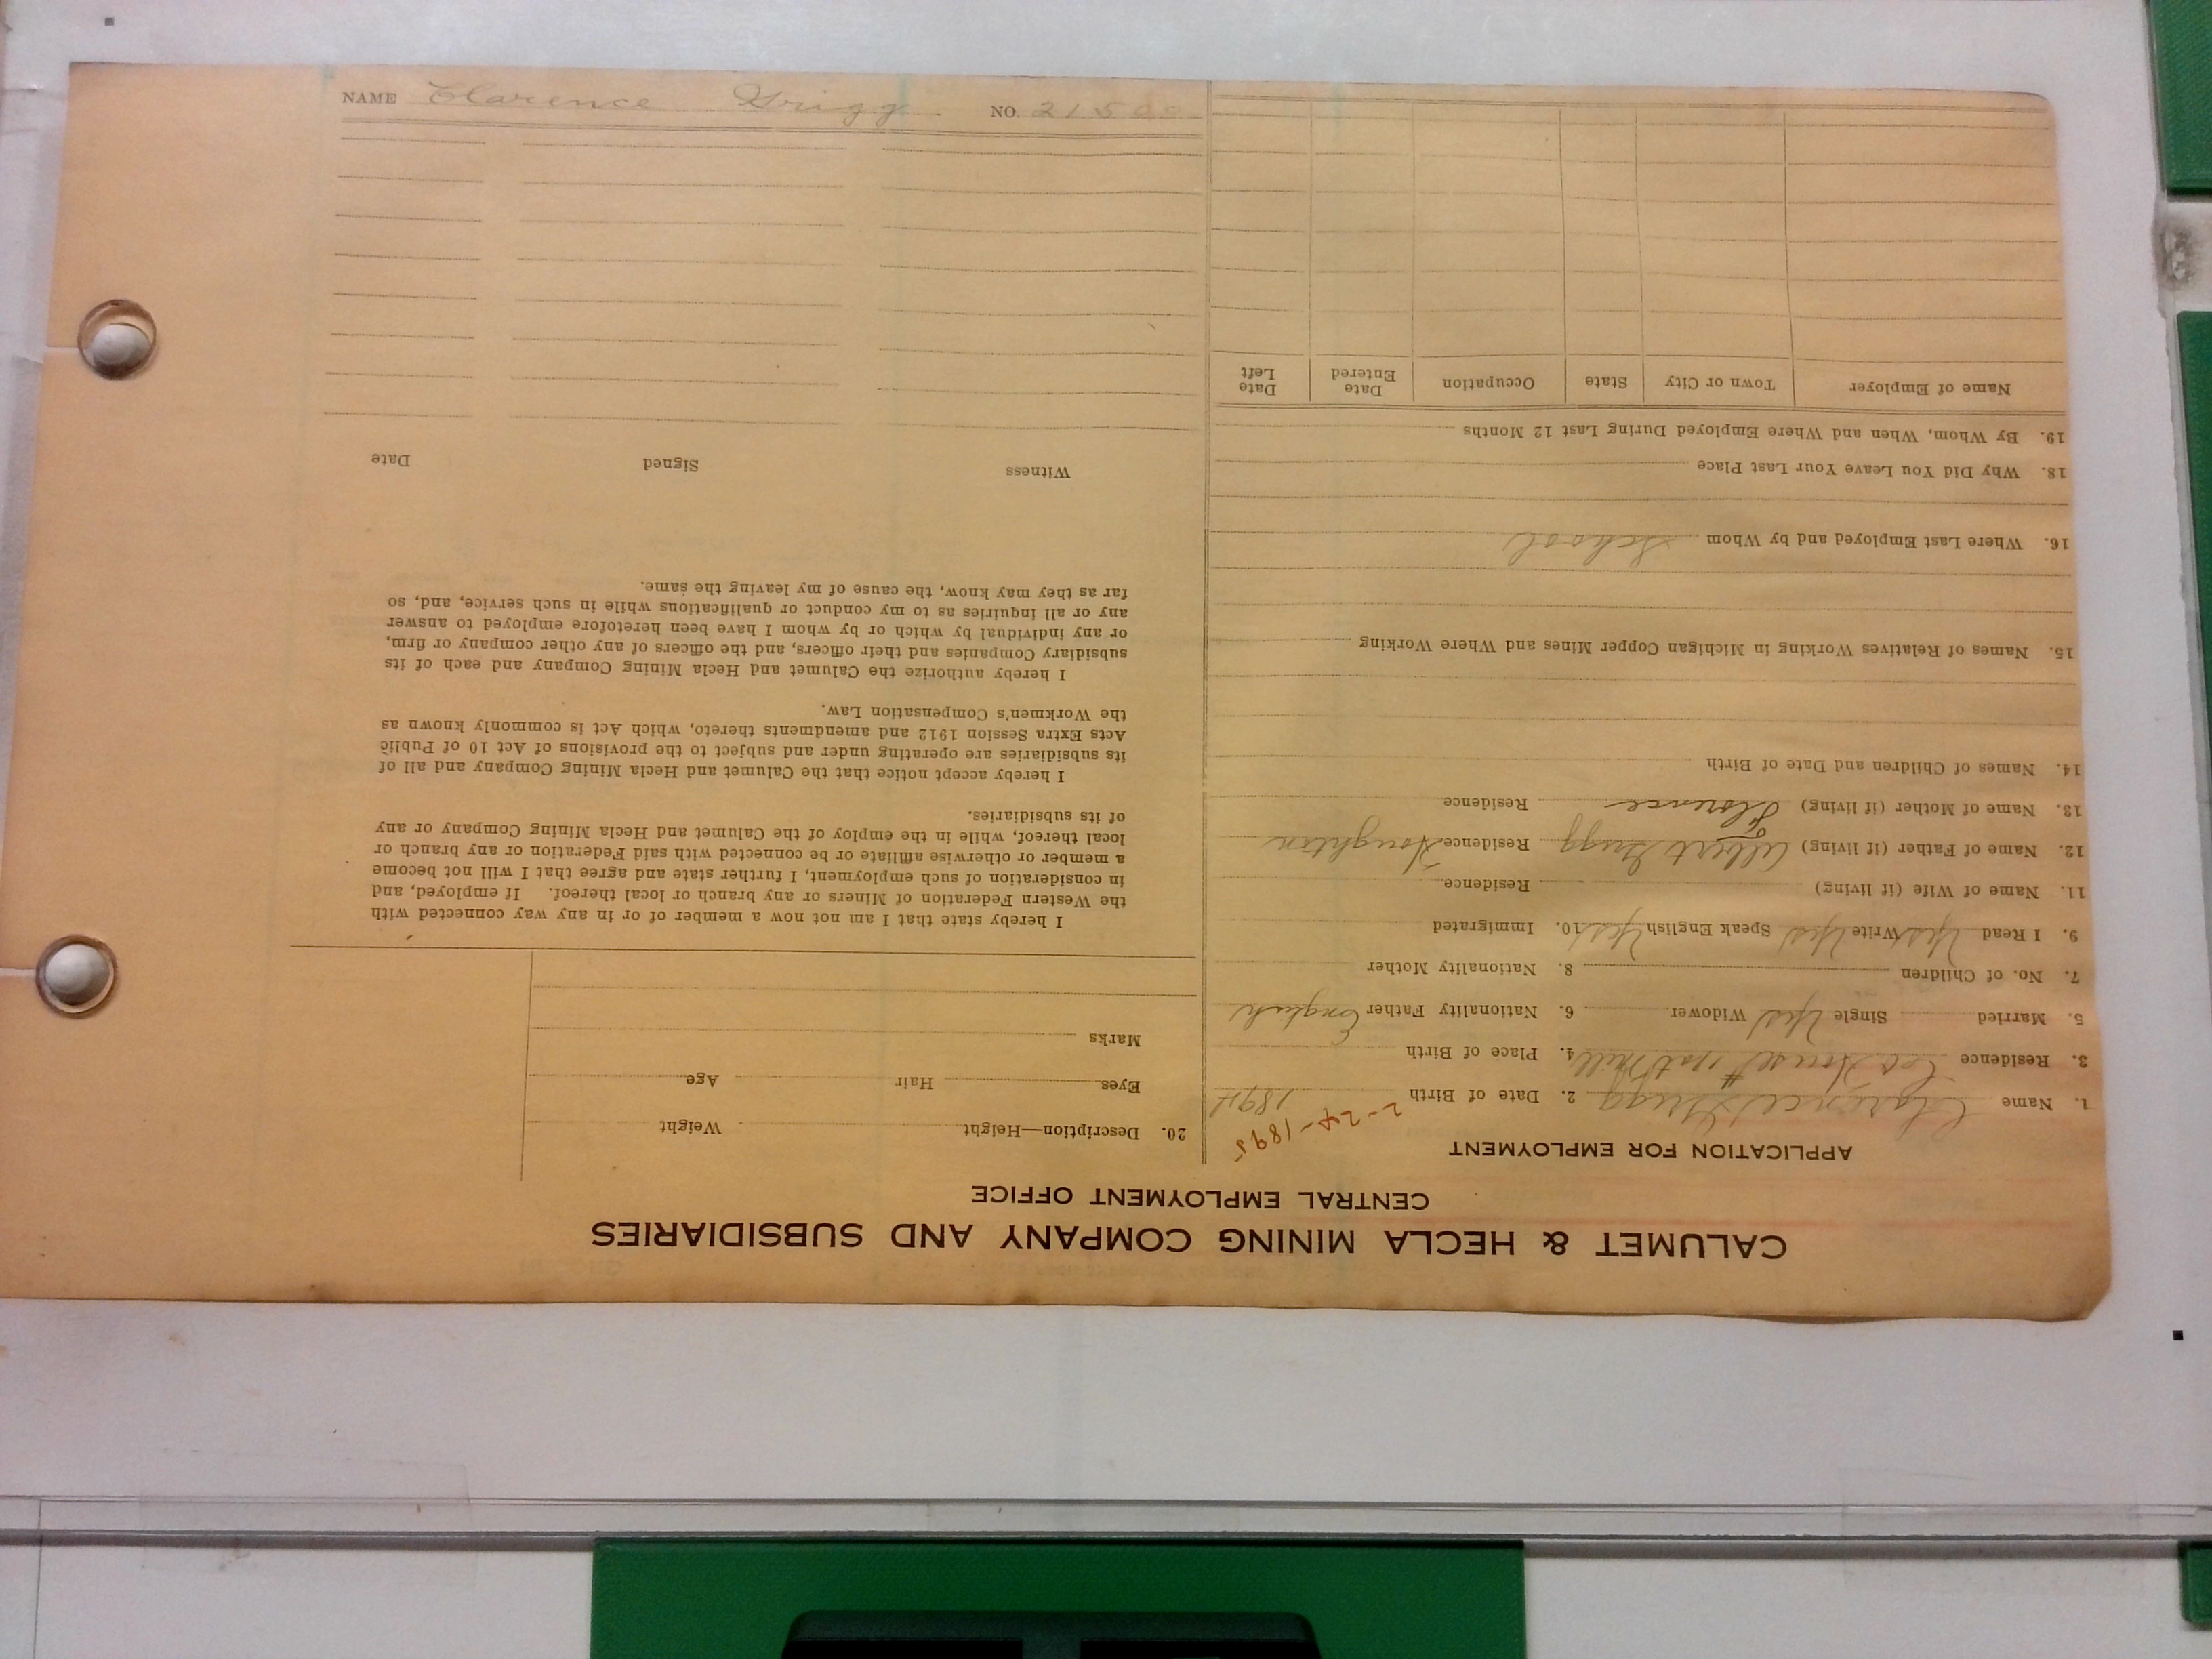 CALUMET & HECLA MINING COMPANY AND SUBSIDIARIES
CENTRAL EMPLOYMENT OFFICE
APPLICATION FOR EMPLOYMENT
1. Name Clarence Grigg 2. Date of Birth 2-24-1895 1894
3. Residence 4. Place of Birth
5. Married Single Yes Widower 6. Nationality Father English
7. No. of Children 8. Nationality Mother
9. I Read Yes Write Yes Speak English Yes 10. Immigrated
11. Name of Wife (if living) Residence
12. Name of Father (if living) Albert Grigg Residence Houghton
13. Name of Mother (if living) Florence Residence
14. Names of Children and Date of Birth
15. Names of Relatives Working in Michigan Copper Mines and Where Working
16. Where Last Employed and by Whom School
18. Why Did You Leave Your Last Place
19. By Whom, When and Where Employed During Last 12 Months
Name of Employer Town or City State Occupation Date Entered Date Left
20. Description—Height Weight
Eyes Hair Age
Marks
I hereby state that I am not now a member of or in any way connected with
the Western Federation of Miners or any branch or local thereof. If employed, and
in consideration of such employment, I further state and agree that I will not become
a member or otherwise affiliate or be connected with said Federation or any branch or
local thereof, while in the employ of the Calumet and Hecla Mining Company or any
of its subsidiaries.
I hereby accept notice that the Calumet and Hecla Mining Company and all of
its subsidiaries are operating under and subject to the provisions of Act 10 of Public
Acts Extra Session 1912 and amendments thereto, which Act is commonly known as
the Workmen's Compensation Law.
I hereby authorize the Calumet and Hecla Mining Company and each of its
subsidiary Companies and their officers, and the officers of any other company or firm,
or any individual by which or by whom I have been heretofore employed to answer
any or all inquiries as to my conduct or qualifications while in such service, and, so
far as they may know, the cause of my leaving the same.
Witness Signed Date
NAME Clarence Grigg NO. 21500